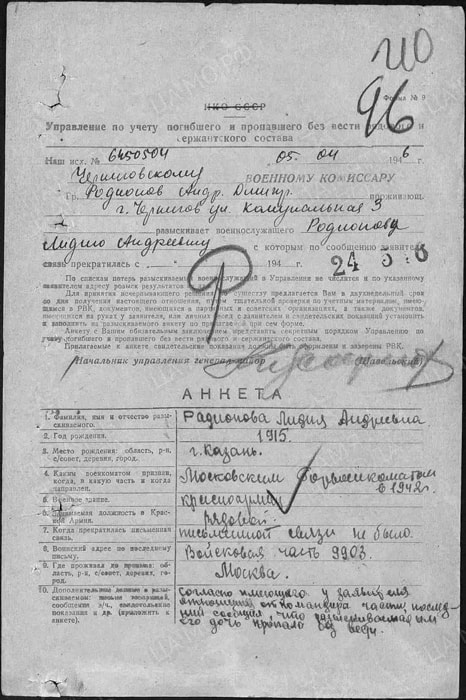 210
96
Форма № 9
НКО СССР
Управление по учету погибшего и пропавшего без вести рядового и
сержантского состава
Наш исх. № 6450504 05.04 1946 г.
Черниговскому ВОЕННОМУ КОМИССАРУ
Гр. Родионов Андр. Дмитр. проживающ.
г. Чернигов ул. Комунальная 3
разыскивает военнослужащего Родионову
Лидию Андреевну с которым по сообщению заявителя
связь прекратилась с 194
24
По спискам потерь разыскиваемый военнослужащий в Управлении не числится и по указанному
заявителем адресу розыск результатов
Для принятия исчерпывающего решения по существу предлагается Вам в двухнедельный срок
со дня получения настоящего отношения, путем тщательной проверки по учетным материалам, имею-
щимся в РВК, документов, имеющихся в партийных и советских организациях, а также документов,
имеющихся на руках у заявителя, или личных бесед с заявителем и свидетельских показаний установить
и заполнить на разыскиваемого анкету по приведенной при сем форме.
Анкету с Вашим обязательным заключением представить секретным порядком Управлению по
учету погибшего и пропавшего без вести рядового и сержантского состава.
Прилагаемые к анкете свидетельские показания должны быть оформлены и заверены РВК.
Начальник управления генерал-майор
АНКЕТА
1. Фамилия, имя и отчество разы-
скиваемого. Радионова Лидия Андреевна
2. Год рождения. 1915
3. Место рождения: область, р-н,
с/совет, деревня, город. г. Казань.
4. Каким военкоматом призван,
когда, в какую часть и когда
направлен. Московским Горвоенкоматом
в 1942 г.
5. Военное звание. красноармеец
6. Занимаемая должность в Крас-
ной Армии. Рядовой.
7. Когда прекратилась письменная
связь. письменной связи не было.
8. Воинский адрес по последнему
письму. Войсковая часть 9903.
9. Где проживал до призыва: об-
ласть, р-н, с/совет, деревня, го-
род. Москва.
10. Дополнительные данные о разы-
скиваемом:
показания и др. (приложить к
анкете). согласно имеющего у заявителя
отношения от командира части послед-
ний сообщил, что разыскиваемая им
его дочь пропала без вести.